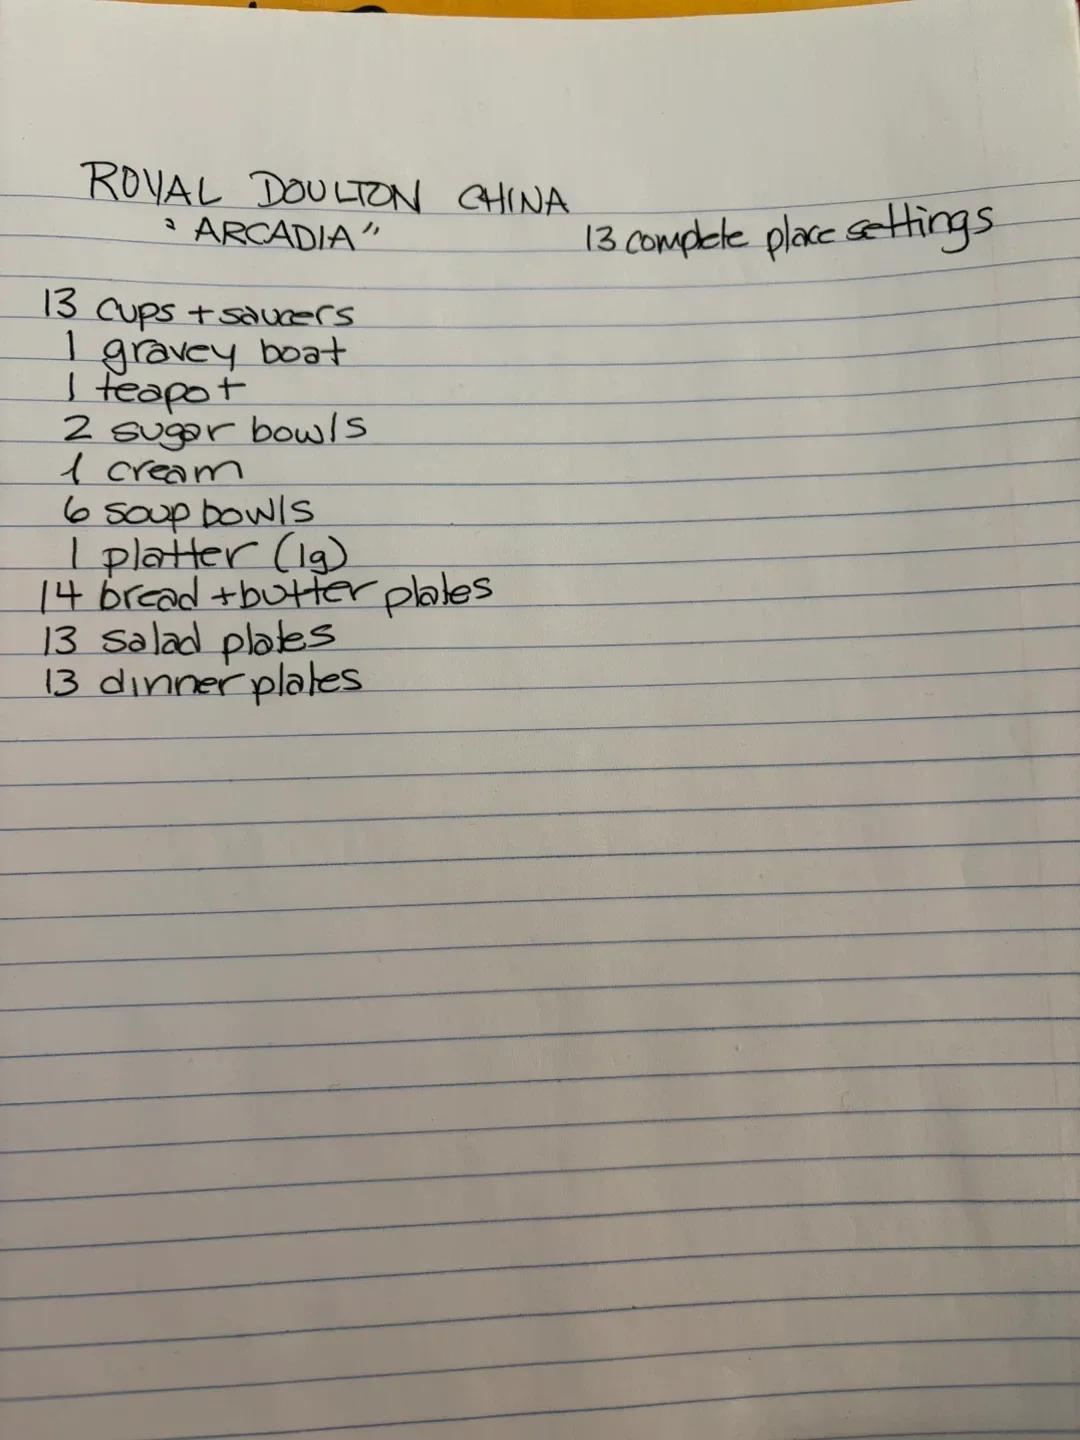 ROYAL DOULTON CHINA
"ARCADIA" 13 complete place settings
13 cups + saucers
1 gravey boat
1 teapot
2 sugar bowls
1 cream
6 soup bowls
1 platter (lg)
14 bread + butter plates
13 salad plates
13 dinner plates